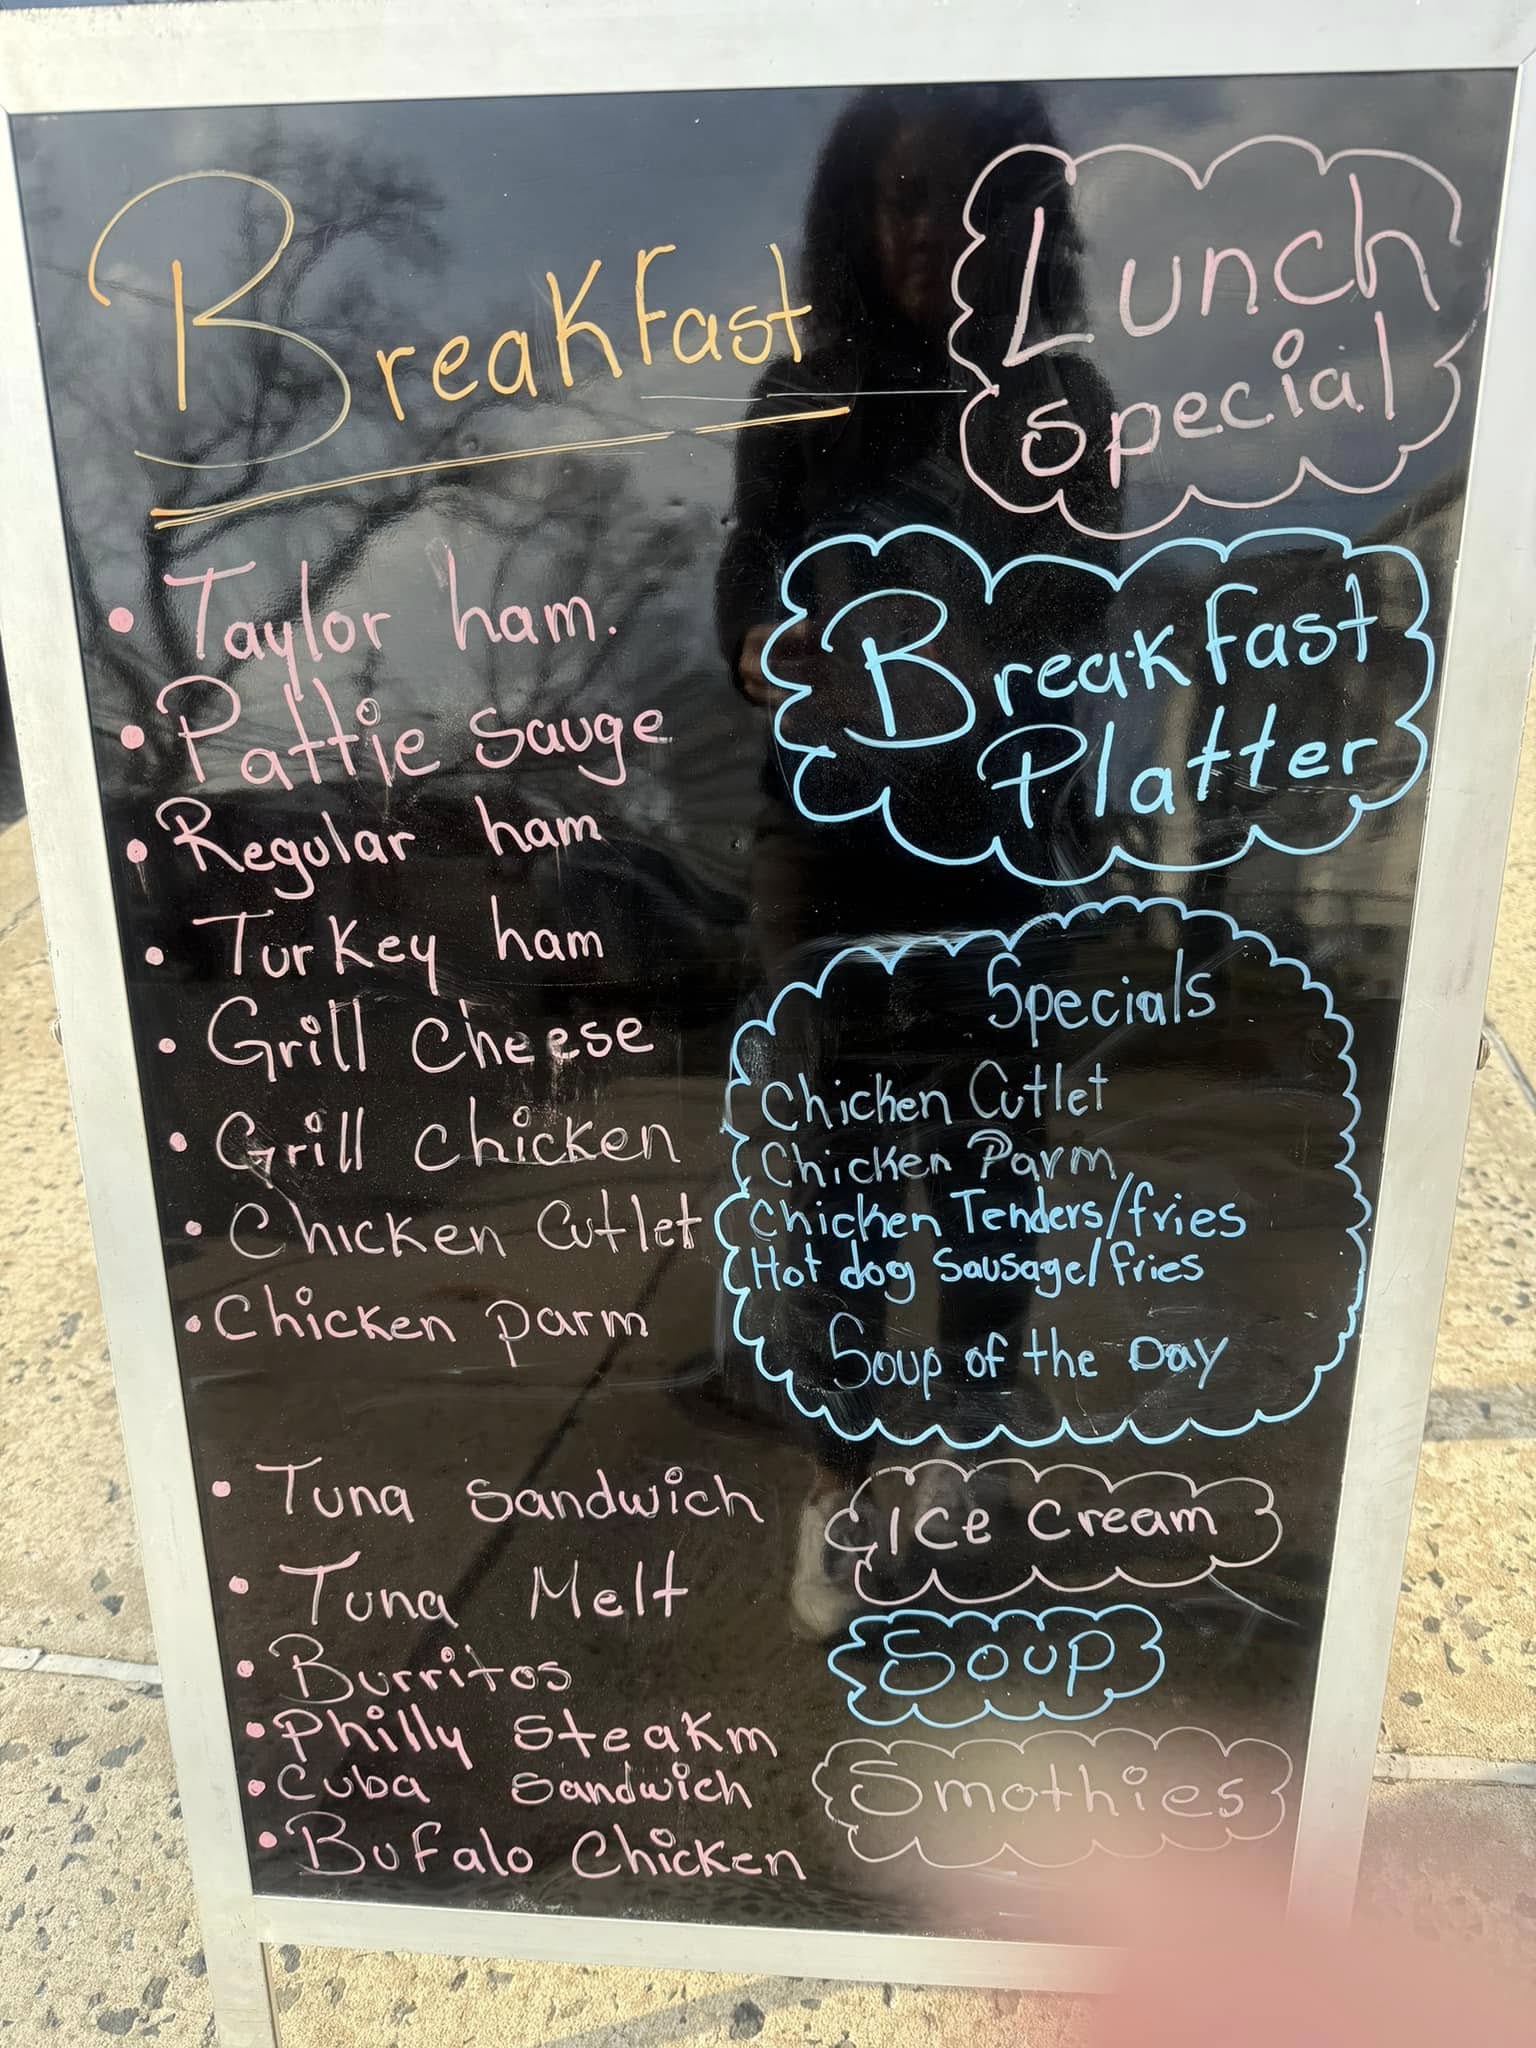 Breakfast
• Taylor ham.
• Pattie sauge
• Regular ham
• Turkey ham
• Grill cheese
• Grill chicken
• Chicken Cutlet
• Chicken parm
• Tuna sandwich
• Tuna Melt
• Burritos
• Philly steakm
• Cuba sandwich
• Bufalo Chicken
Lunch
special
Breakfast
Platter
Specials
Chicken Cutlet
Chicken Parm
Chicken Tenders/fries
Hot dog Sausage/fries
Soup of the Day
Ice cream
Soup
Smothies